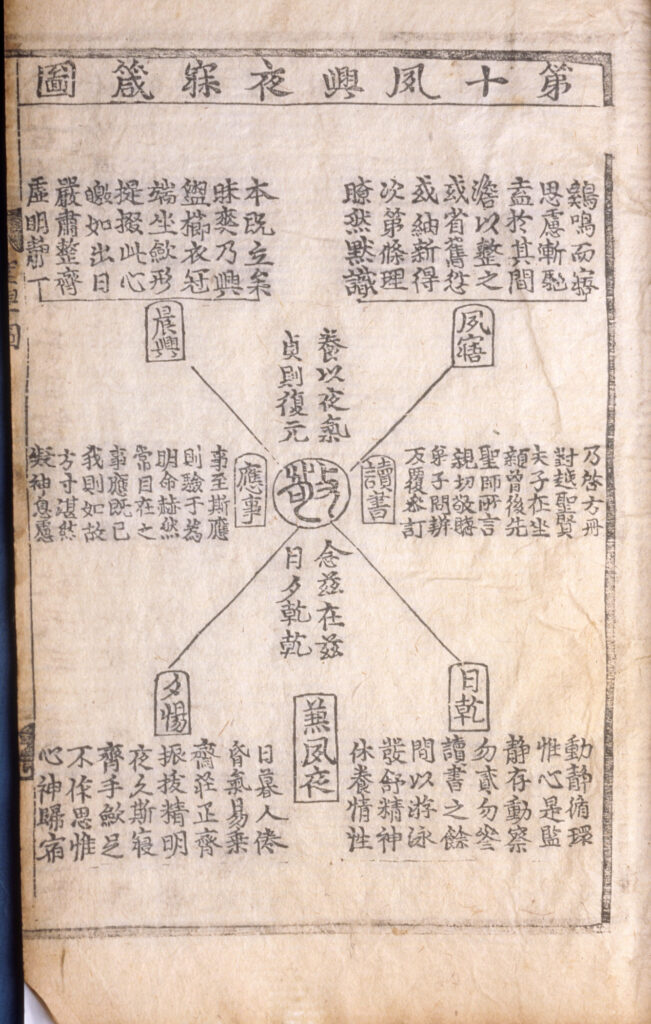 第十夙興夜寐箴圖
鷄鳴而寤
思慮漸馳
盍於其間
澹以整之
或省舊愆
或紬新得
次第條理
瞭然默識
夙寤
本既立矣
昧爽乃興
盥櫛衣冠
端坐斂形
提掇此心
皦如出日
嚴肅整齊
虛明靜一
晨興
養以夜氣
貞則復元
乃啓方冊
對越聖賢
夫子在坐
顏曾後先
聖師所言
親切敬聽
弟子問辨
反覆參訂
讀書
敬
應事
事至斯應
則驗于爲
明命赫然
常目在之
事應既已
我則如故
方寸湛然
凝神息慮
念茲在茲
日夕乾乾
日乾
動靜循環
惟心是監
靜存動察
勿貳勿參
讀書之餘
間以游泳
發舒精神
休養情性
兼夙夜
夕惕
日暮人倦
昏氣易乘
齋莊正齊
振拔精明
夜久斯寢
齊手斂足
不作思惟
心神歸宿